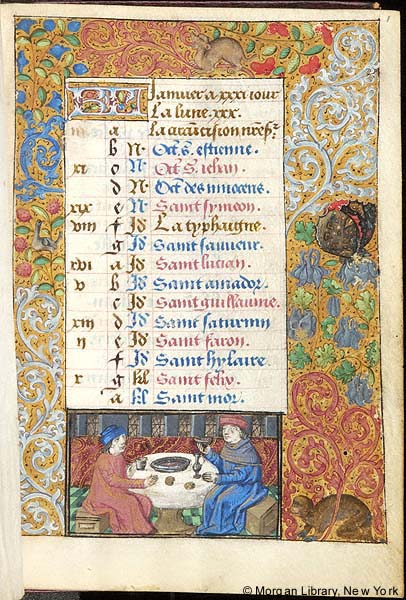 Januier a xxxi iour
La lune .xxx.
iii a La circuncision nreß.
b N. Oct̄. s. estienne.
xi c N. Oct̄. S. iehan.
d N. Oct des innocens.
xix e N. Saint symeon.
viii f Id La typhaigne.
g Id Saint sauueur.
xvi a Id Saint lucian.
v b Id Saint amador.
c Id Saint guillaume.
xiii d Id Saint saturnin
ii e Id Saint faron.
f Id Saint hylaire.
x g kl Saint felix.
a kl Saint mor.
1
© Morgan Library, New York